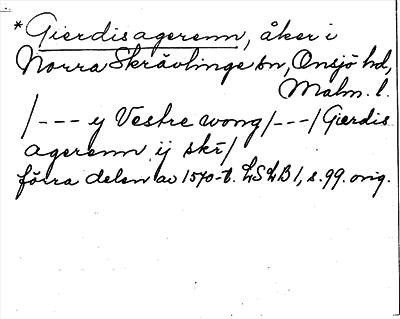 *Gierdisagerenn, åker i
Norra Skrävlinge sn, Onsjö hd,
Malm. l.
/--- ij Vestre wong /---/ Gierdis
agerenn ij skr̄/
förra delen av 1570-t. LSLB 1, s. 99. orig.